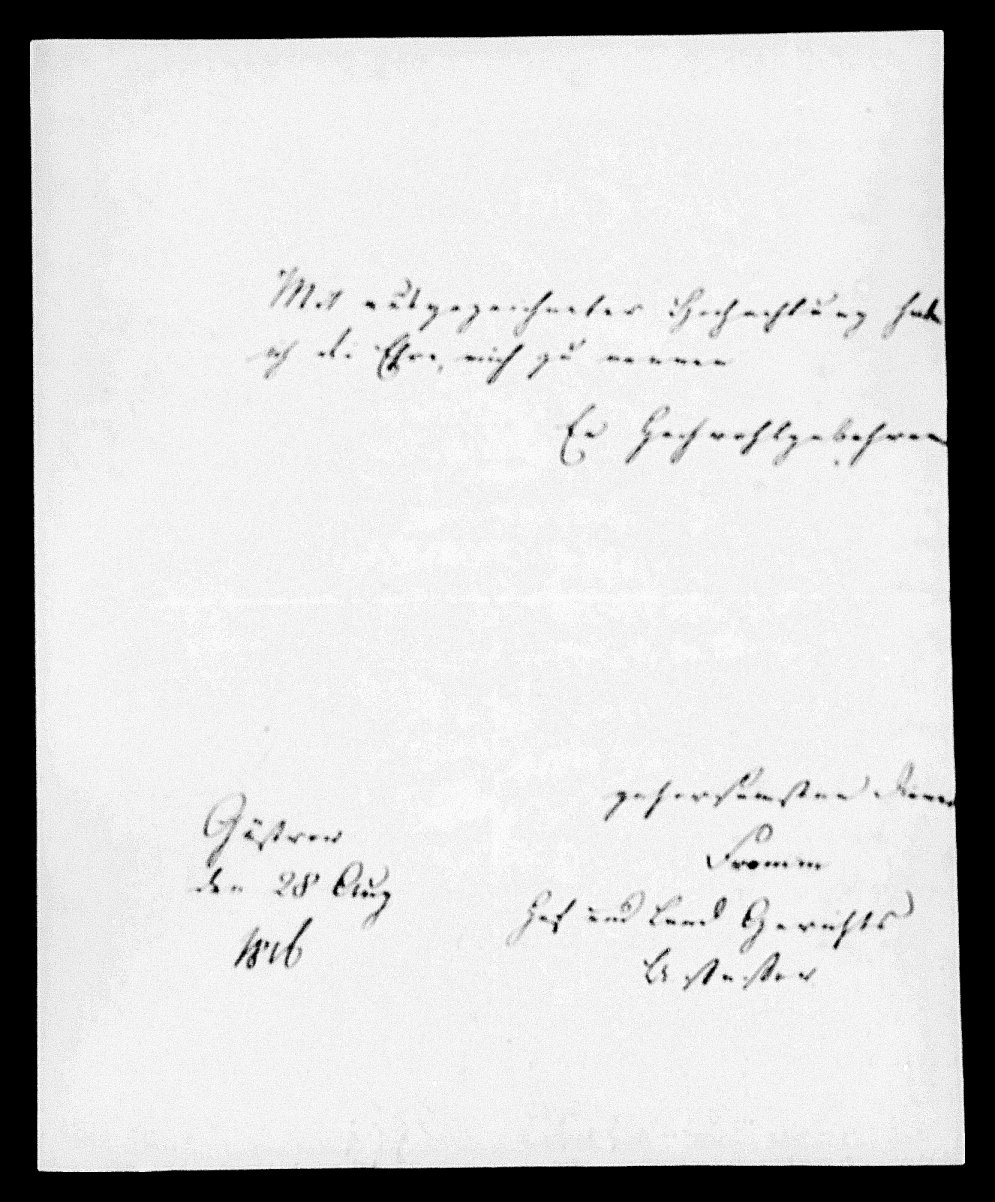 Mit ausgezeichneter Hochachtung habe
ich die Ehre, mich zu nennen
Ew Hochwohlgebohren
gehorsamster Diener
Fromm
Hof und Land Gerichts
Assessor
Güstrow
den 28 Aug
1816